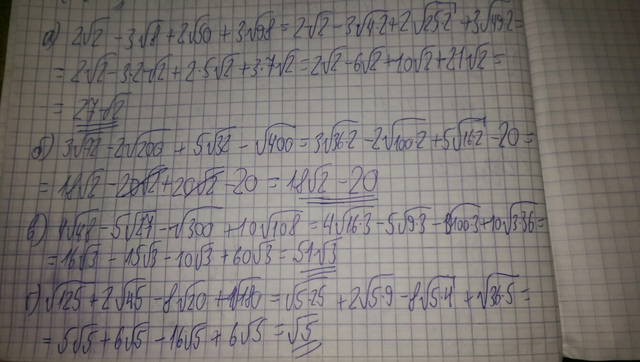 а) 2√2 - 3√8 + 2√50 + 3√98 = 2√2 - 3√4·2 + 2√25·2 + 3√49·2 =
= 2√2 - 3·2·√2 + 2·5√2 + 3·7√2 = 2√2 - 6√2 + 10√2 + 21√2 =
= 27√2
б) 3√72 - 2√200 + 5√32 - √400 = 3√36·2 - 2√100·2 + 5√16·2 - 20 =
= 18√2 - 20√2 + 20√2 - 20 = 18√2 - 20
в) 4√48 - 5√27 - √300 + 10√108 = 4√16·3 - 5√9·3 - √100·3 + 10√3·36 =
= 16√3 - 15√3 - 10√3 + 60√3 = 51√3
г) √125 + 2√45 - 8√20 + √180 = √5·25 + 2√5·9 - 8√5·4 + √36·5 =
= 5√5 + 6√5 - 16√5 + 6√5 = √5